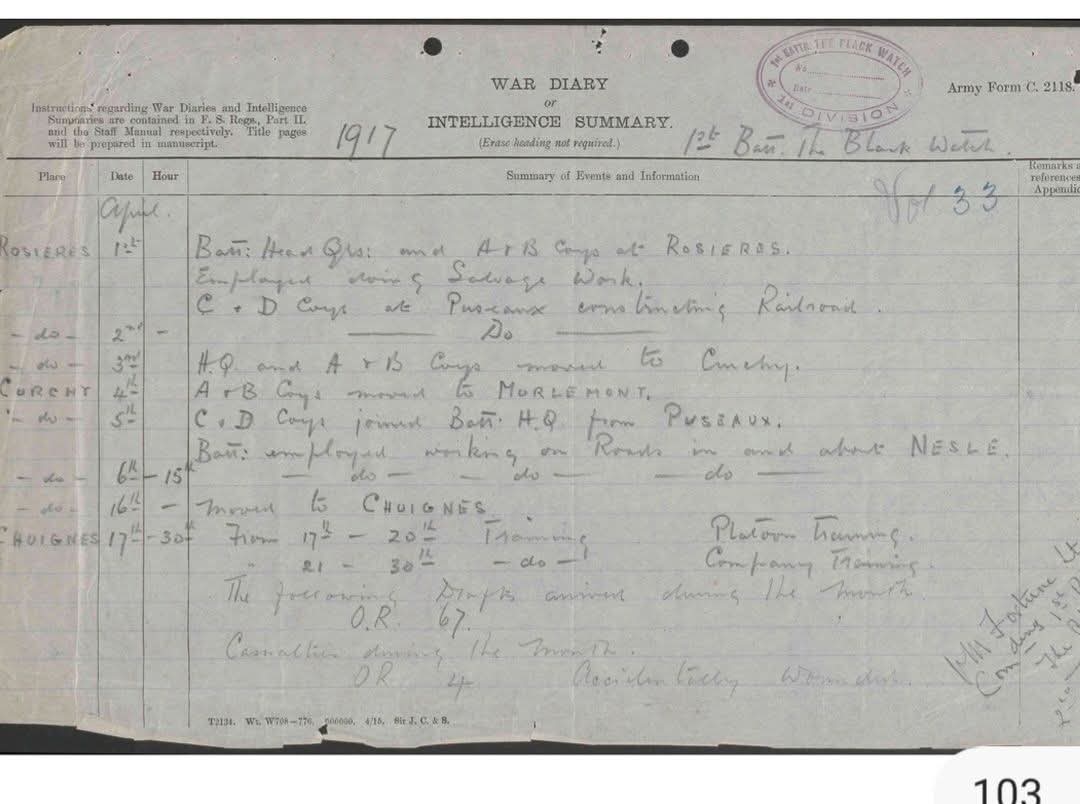 WAR DIARY
or
INTELLIGENCE SUMMARY.
(Erase heading not required.)
Army Form C. 2118.
Instructions regarding War Diaries and Intelligence
Summaries are contained in F. S. Regs., Part II.
and the Staff Manual respectively. Title pages
will be prepared in manuscript.
1917
1st BATTN. THE BLACK WATCH
No.
Date
1st DIVISION
1st Batt. The Black Watch.
Place Date Hour Summary of Events and Information Remarks a
references
Appendic
Vol 33
April.
ROSIERES 1st Batt: Head Qrs: and A & B Coys at ROSIERES.
Employed doing Salvage Work.
C & D Coys at Puseaux constructing Railroad.
- do - 2nd - Do
- do - 3rd H.Q. and A & B Coys moved to Curchy.
CURCHY 4th A & B Coys moved to MORLEMONT.
- do - 5th C & D Coys joined Batt. H.Q. from PUSEAUX.
Batt: employed working on Roads in and about NESLE.
- do - 6th - 15th - do - - do - - do -
- do - 16th - moved to CHUIGNES
CHUIGNES 17th - 30th From 17th - 20th Training Platoon Training.
" 21 - 30th - do - Company Training
The following Drafts arrived during the month
O.R. 67.
Casualties during the month.
OR 4 Accidentally Wounded.
Fortune Lt
Comding 1st
The
T2134. Wt. W708—776. 500000. 4/15. Sir J. C. & S.
103